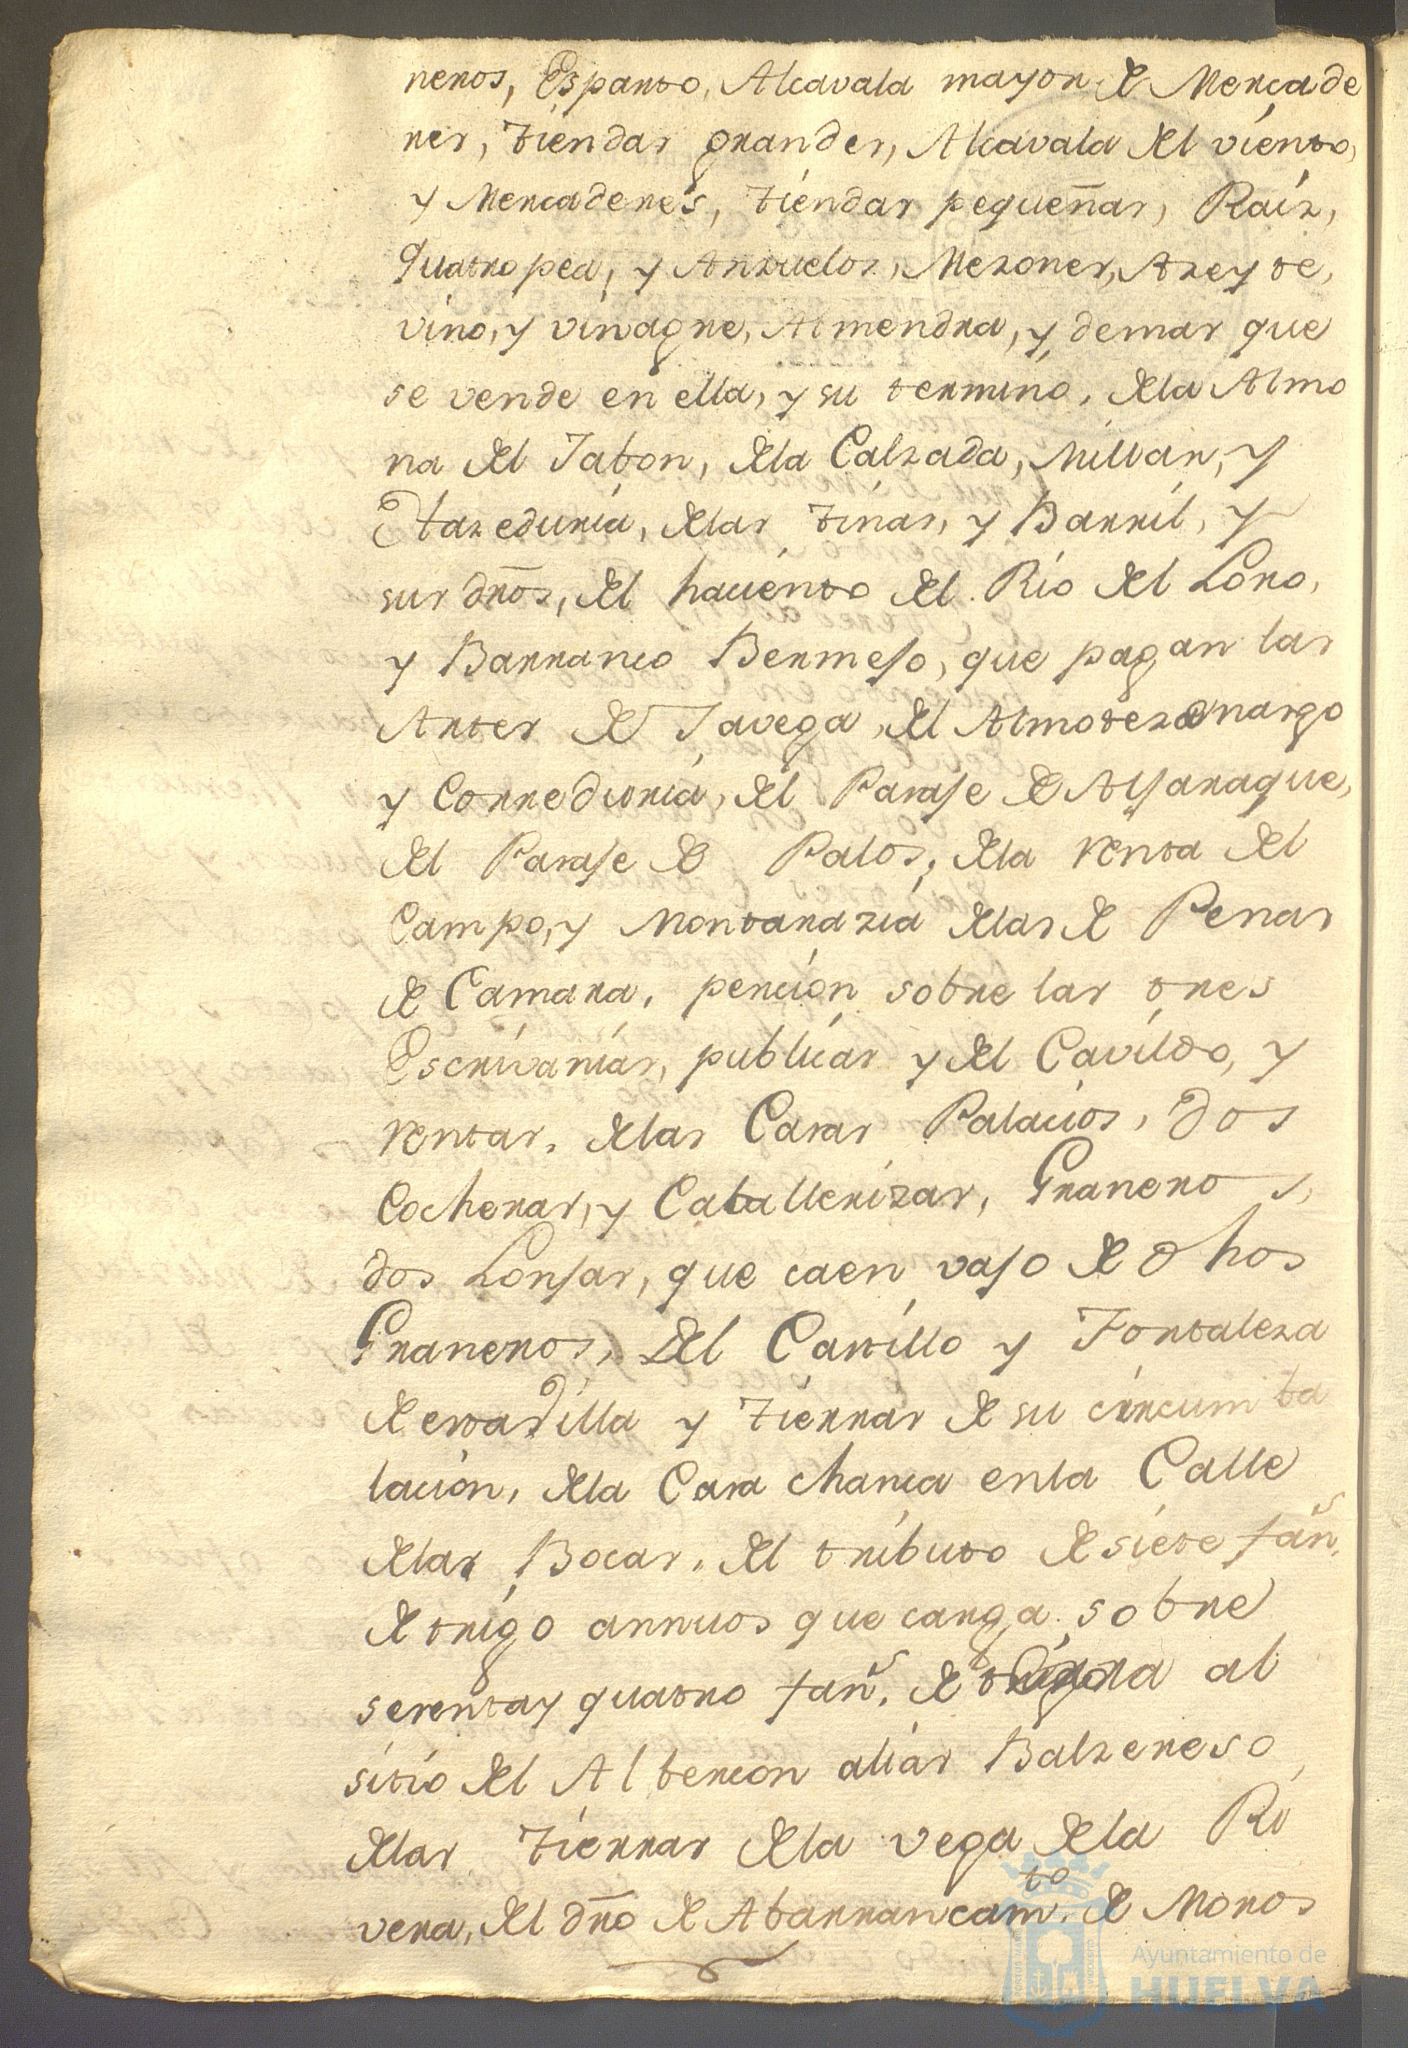 neros, Esparto, Alcavala mayor de Mercade
res, tiendas grandes, Alcavala del viento,
y Mercaderes, tiendas pequeñas, Raiz,
quatropea, y Anzuelos, Mezones, Azeyte,
vino, y vinagre, Almendra, y demas que
se vende en ella, y su termino, dela Almo
na del Jabon, dela Calzada, Millar, y
Hazeduria, delas tinas, y Barril, y
sus dr̃os, del haciento del Rio del Loro,
y Barranco Bermejo, que pagan las
Artes de Javega, del Almotezenazgo
y Correduria, del Paraje de Aljaraque,
del Paraje de Palos, dela renta del
Campo, y Montarazia delas de Penas
de Camara, pencion sobre las tres
Escrivanias, publicas y del Cavildo, y
rentas, delas Casas Palacios, dos
Cocheras, y Caballerizas, Graneros,
dos Lonjas, que caen vajo de dhos
Graneros, del Castillo y Fortaleza
de estadilla y tierras de su circumba
lacion, dela Casa chanca enla Calle
delas Bocas, del tributo de siete fañs.
de trigo annuos que carga sobre
sesenta y quatro fañs. de al
sitio del Albercon alias Balzereso,
delas tierras dela vega dela Ri
vera, del dr̃o de Abarrancamto. de Moros
Ayuntamiento de
HUELVA